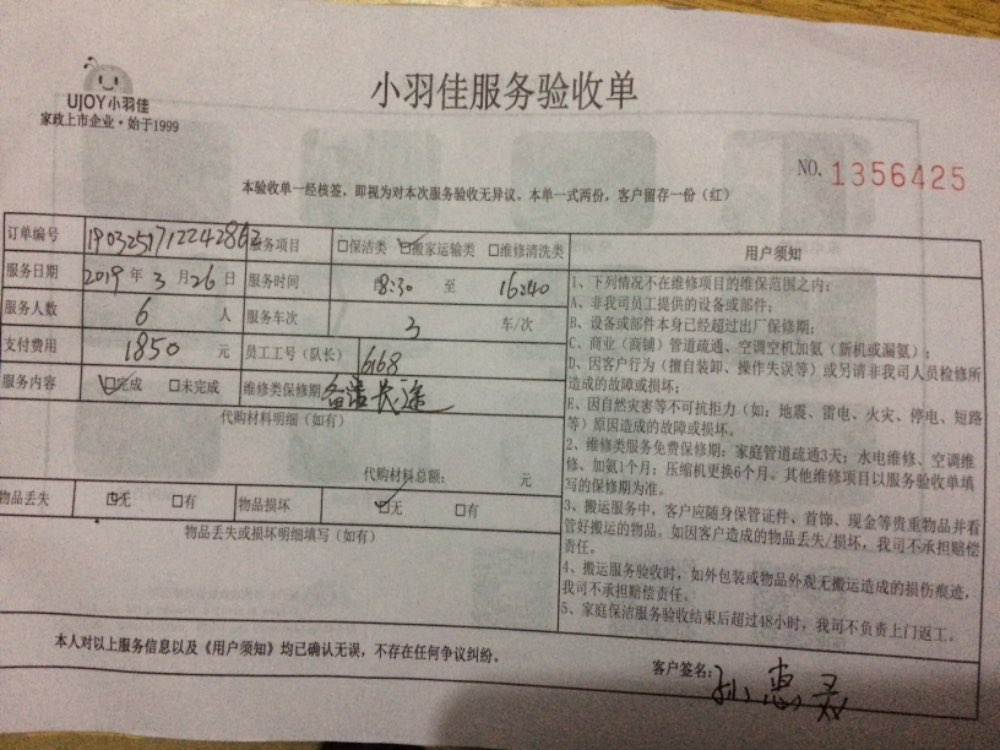 UJOY小羽佳
家政上市企业·始于1999
小羽佳服务验收单
NO. 1356425
本验收单一经核签，即视为对本次服务验收无异议。本单一式两份，客户留存一份（红）
订单编号 服务项目 □保洁类 □搬家运输类 □维修清洗类
服务日期 2019 年 3 月 26 日 服务时间 8:30 至 16:40
服务人数 6 人 服务车次 3 车/次
支付费用 1850 元 员工工号（队长） 668
服务内容 □完成 □未完成 维修类保修期
代购材料明细（如有）
代购材料总额： 元
物品丢失 □无 □有 物品损坏 □无 □有
物品丢失或损坏明细填写（如有）
用户须知
1、下列情况不在维修项目的维保范围之内：
A、非我司员工提供的设备或部件；
B、设备或部件本身已经超过出厂保修期；
C、商业（商铺）管道疏通、空调空机加氨（新机或漏氨）；
D、因客户行为（擅自装卸、操作失误等）或另请非我司人员检修所
造成的故障或损坏；
E、因自然灾害等不可抗拒力（如：地震、雷电、火灾、停电、短路
等）原因造成的故障或损坏。
2、维修类服务免费保修期：家庭管道疏通3天；水电维修、空调维
修、加氨1个月；压缩机更换6个月。其他维修项目以服务验收单填
写的保修期为准。
3、搬运服务中，客户应随身保管证件、首饰、现金等贵重物品并看
管好搬运的物品。如因客户造成的物品丢失/损坏，我司不承担赔偿
责任。
4、搬运服务验收时，如外包装或物品外观无搬运造成的损伤痕迹，
我司不承担赔偿责任。
5、家庭保洁服务验收结束后超过48小时，我司不负责上门返工。
本人对以上服务信息以及《用户须知》均已确认无误，不存在任何争议纠纷。
客户签名：孙惠灵